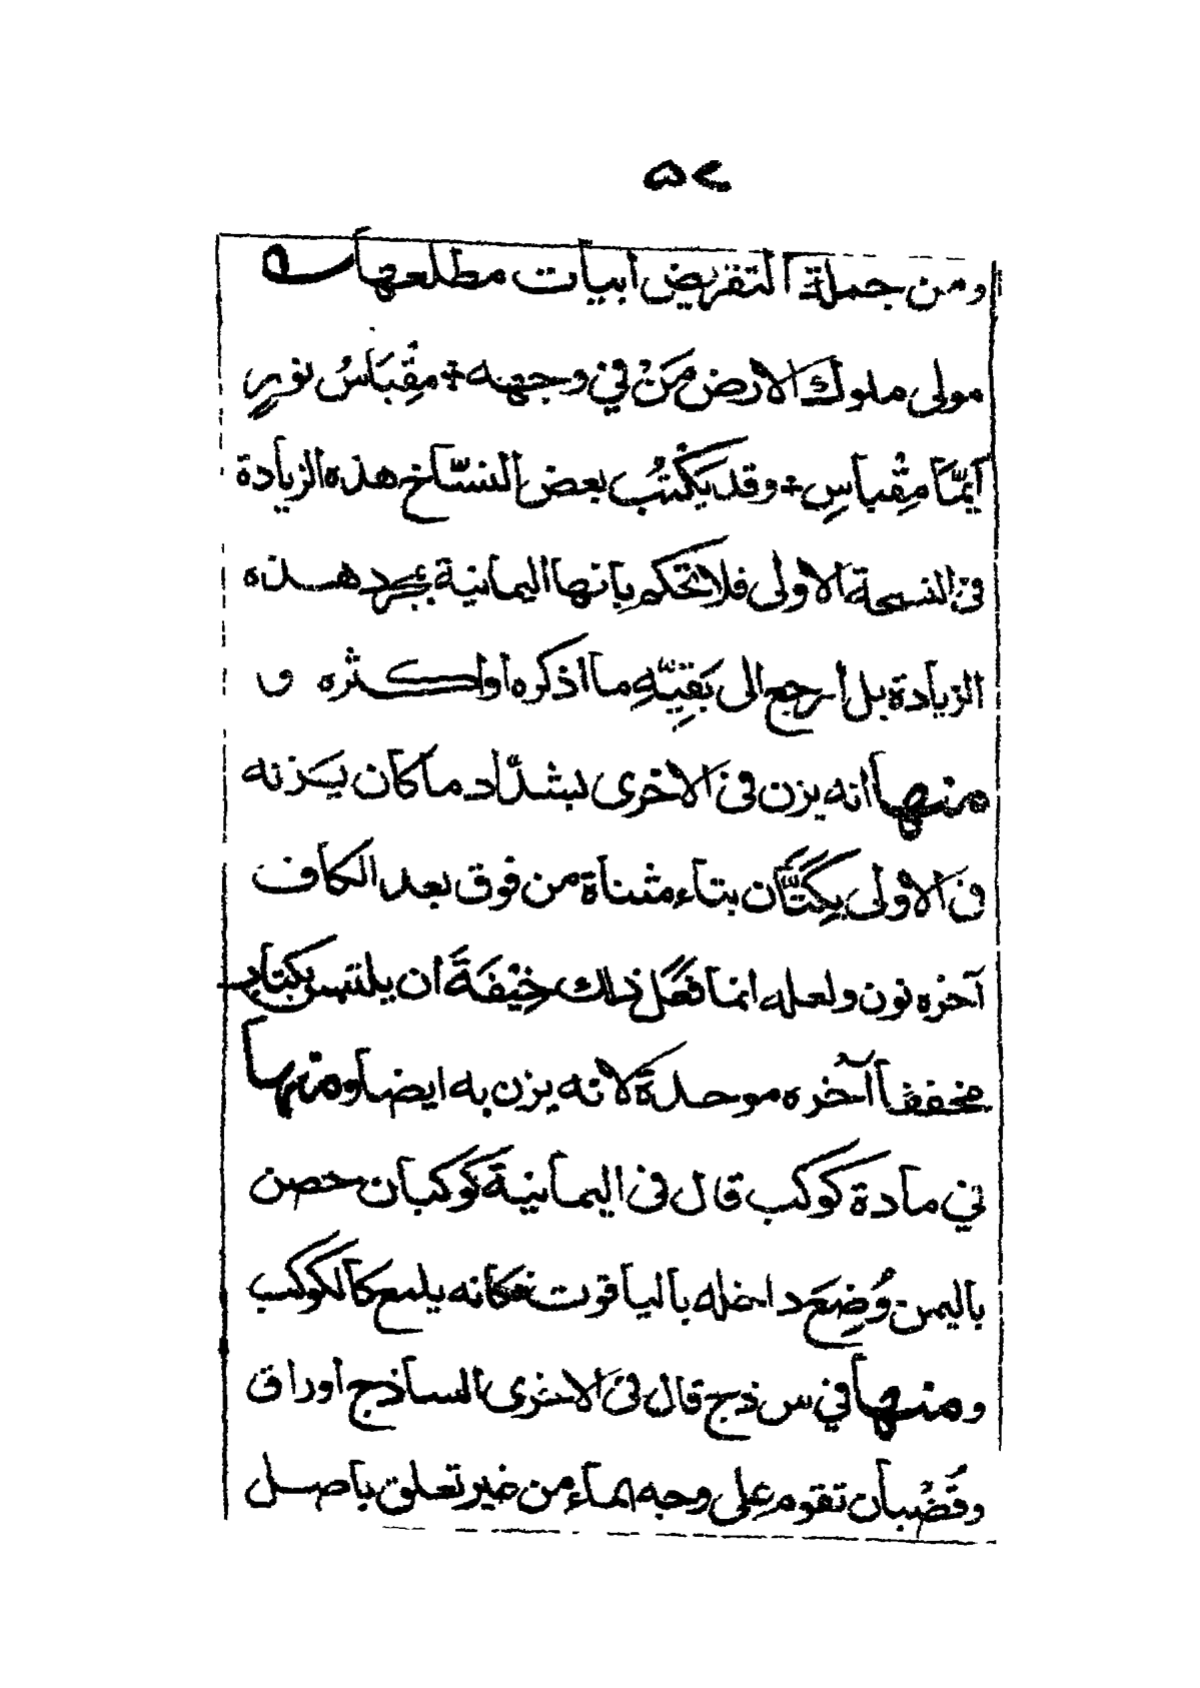 ٥٢
ومن جملة التقريض أبيات مطلعها
مولى ملوك الارض مَنْ في وجهه ÷ مِقْبَاسُ نورٍ
أيَّمَا مِقْباسِ ÷ وقد يَكْتُب بعض النسّاخ هذه الزيادة
في النسخة الاولى فلا تحكم بانها اليمانية بمجرد هذه
الزيادة بل ارجع الى بَقِيَّهِ ما اذكره او اكثره و
منها انه يزن في الاخرى بشدّاد ما كان يزنه
في الاولى بِكَتَّان بتاء مثناة من فوق بعد الكاف
آخره نون ولعله انما فَعَل ذلك خِيْفَةَ ان يلتبس بكتاب
مخففا آخره موحدة لانه يزن به ايضا ومنها
في مادة كوكب قال في اليمانية كوكبان حصن
باليمن وُضِعَ داخله بالياقوت فكانه يلمع كالكوكب
ومنها في س ذج قال في الاخرى الساذج اوراق
وقُضْبان تقوم على وجه الماء من غير تعلق باصل